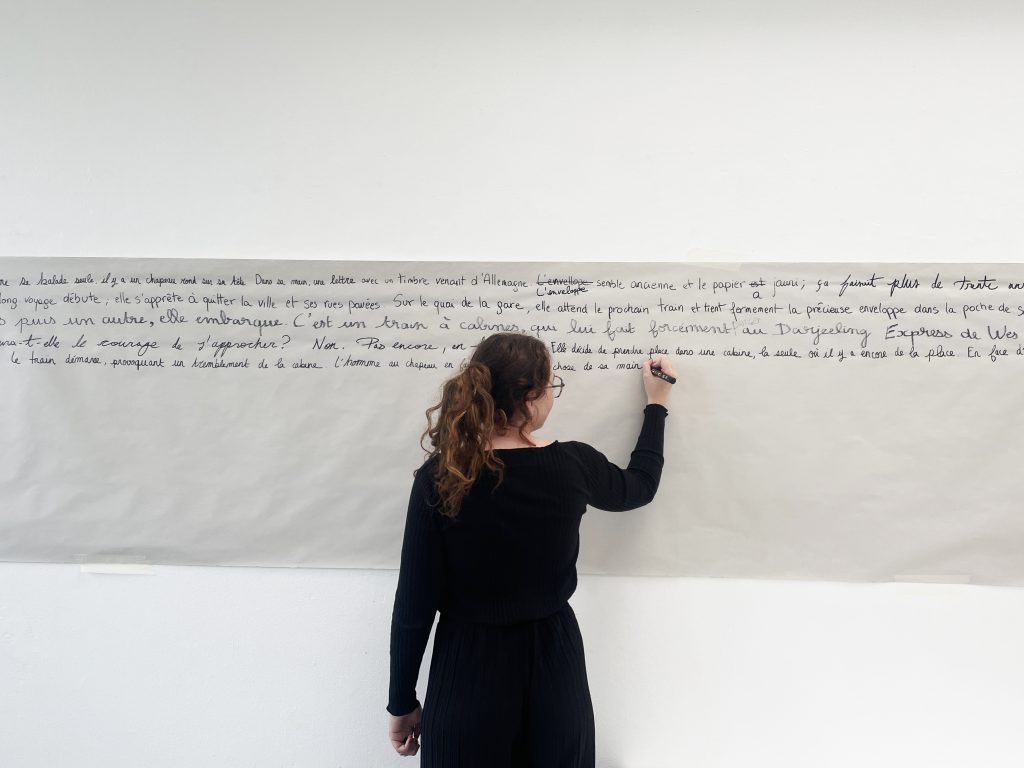 se balade seule, il y a un chapeau rond sur sa tête. Dans sa main, une lettre avec un timbre venant d'Allemagne L'envellope L'enveloppe semble ancienne et le papier est a jauni ; ça faisait plus de trente
long voyage débute ; elle s'apprête à quitter la ville et ses rues pavées. Sur le quai de la gare, elle attend le prochain train et tient fermement la précieuse enveloppe dans la poche de
puis un autre, elle embarque. C'est un train à cabines, qui lui fait forcément au Darjeeling Express de Wes
-t-elle le courage de s'approcher ? Non. Pas encore, en Elle décide de prendre place dans une cabine, la seule où il y a encore de la place. En face
le train démarre, provoquant un tremblement de la cabine. L'homme au chapeau en chose de sa main